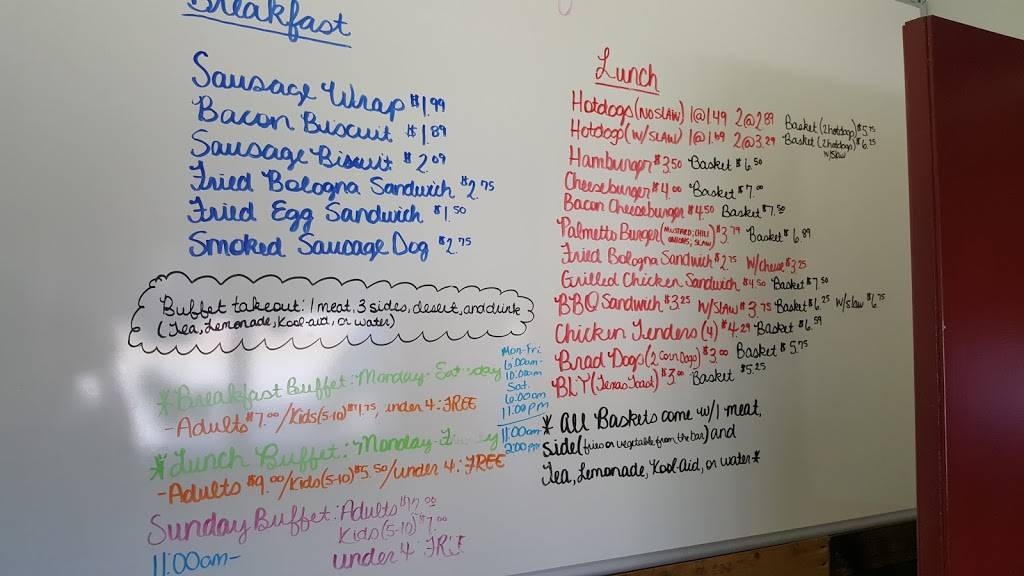 Breakfast
Sausage Wrap $1.99
Bacon Biscuit $1.89
Sausage Biscuit $2.09
Fried Bologna Sandwich $2.75
Fried Egg Sandwich $1.50
Smoked Sausage Dog $2.75
Buffet takeout: 1 meat, 3 sides, desert, and drink
(Tea, Lemonade, Kool-aid, or water)
*Breakfast Buffet: Monday-Saturday
-Adults $7.00/Kids(5-10) $4.75, under 4: FREE
Mon-Fri
6:00am-
10:00am
Sat.
6:00am
11:00pm
*Lunch Buffet: Monday-Friday
-Adults $9.00/Kids(5-10) $5.50/under 4: FREE
11:00am-
2:00pm
Sunday Buffet: Adults
Kids(5-10) $7.00
under 4: FREE
11:00am-
Lunch
Hotdogs (No SLAW) 1@1.49 2@2.89 Basket (2 hotdogs) $5.75
Hotdogs (w/SLAW) 1@1.69 2@3.29 Basket (2 hotdogs) $6.25
w/Slaw
Hamburger $3.50 Basket $6.50
Cheeseburger $4.00 Basket $7.00
Bacon Cheeseburger $4.50 Basket $7.50
Palmetto Burger (MUSTARD, CHILI
ONIONS, SLAW) $3.79 Basket $6.89
Fried Bologna Sandwich $2.75 w/cheese $3.25
Grilled Chicken Sandwich $4.50 Basket $7.50
BBQ Sandwich $3.25 w/SLAW $3.75 Basket $6.25 w/slaw $6.75
Chicken Tenders (4) $4.29 Basket $6.59
Brad Dogs (2 Corn Dogs) $3.00 Basket $5.75
BLT (Texas Toast) $3.00 Basket $5.25
* All Baskets come w/ 1 meat,
side (fries or vegetable from the bar) and
Tea, Lemonade, Kool-Aid, or water *